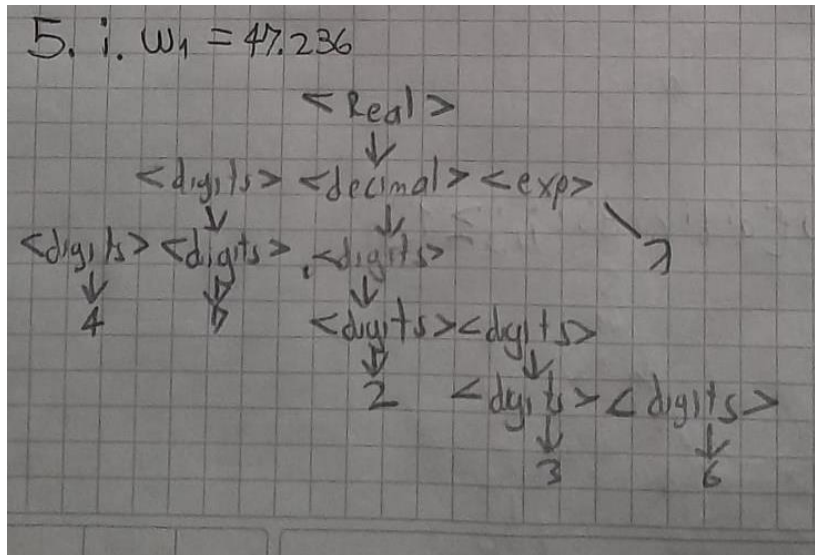 5. i. w₁ = 47.236
<Real>
<digits> <decimal> <exp>
<digits> <digits> .<digits> λ
4 7 <digits> <digits>
2 <digits> <digits>
3 6